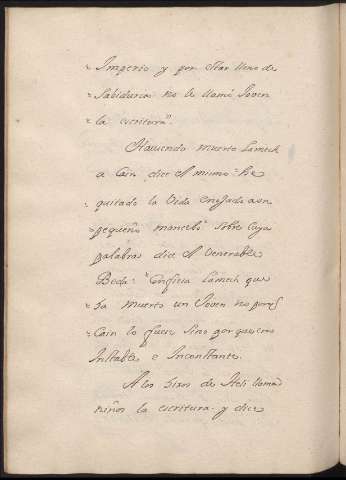 "Imperio y por estar lleno de
"Sabiduria no le llamó Joven
"la escritura".
Haviendo muerto Lamech
a Cain dice el mismo: he
"quitado la vida enojado a un
"pequeño mancebo" sobre cuya
palabra dice el Venerable
Beda: "Confiesa Lamech que
"ha muerto un Joven no porq̃
"Cain lo fuese sino por que era
Instable e Inconstante.
A los hijos de Heli llama
niños la escritura y dice